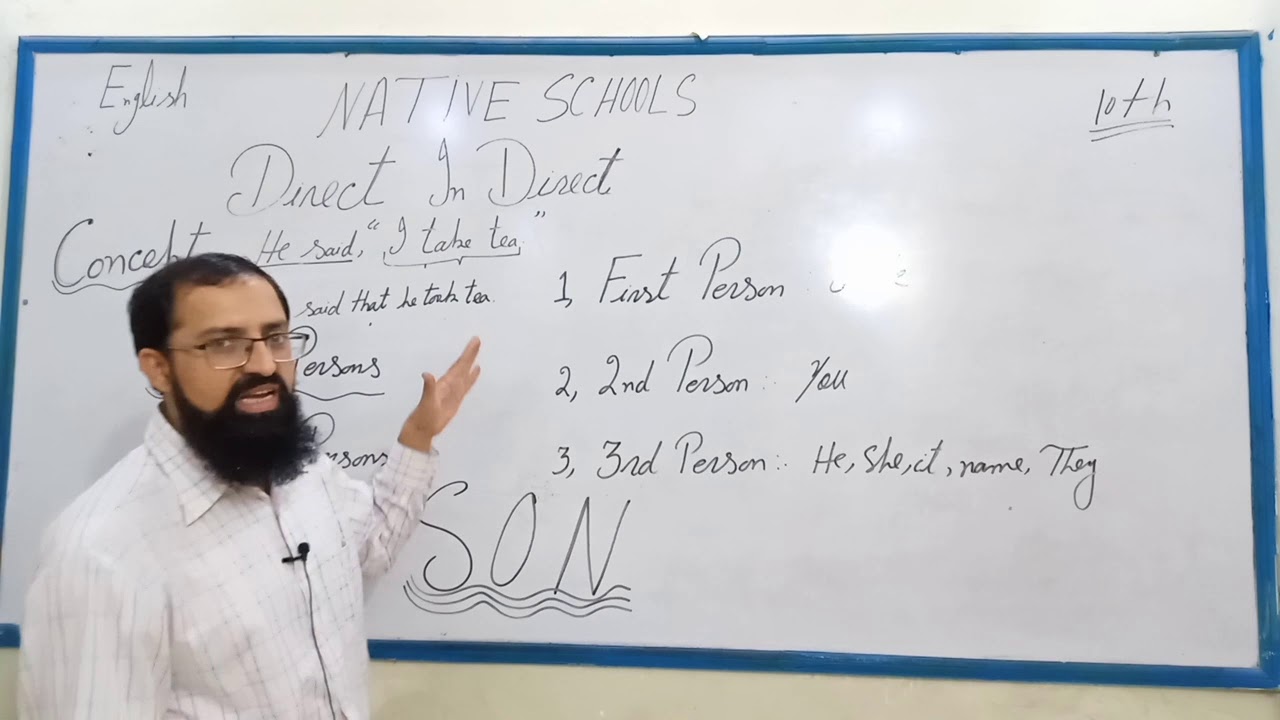 English
NATIVE SCHOOLS
10th
Direct In Direct
Concept He said, "I take tea."
said that he took tea.
1, First Person
Persons
2, 2nd Person : You
3, 3rd Person :. He, She, it, name, They
SON